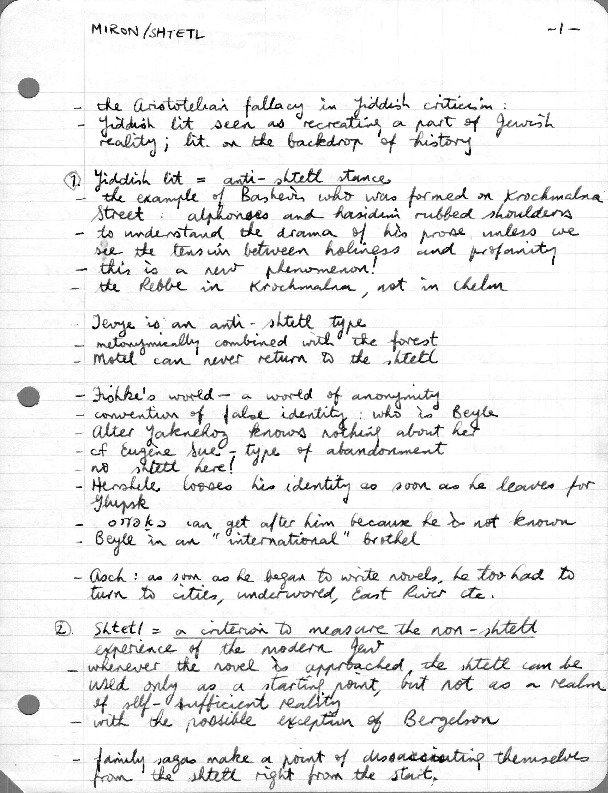 MIRON/SHTETL -1-
- the Aristotelian fallacy in Yiddish criticism:
- Yiddish lit seen as recreating a part of Jewish
reality; lit. on the backdrop of history
1. Yiddish lit = anti-shtetl stance
- the example of Bashevis who was formed on Krochmalna
Street: alphonses and hasidim rubbed shoulders
- to understand the drama of his prose unless we
see the tension between holiness and profanity
- this is a new phenomenon!
- the Rebbe in Krochmalna, not in Chelm
Tevye is an anti-shtetl type
- metonymically combined with the forest
- Motel can never return to the shtetl
- Fishke's world - a world of anonymity
- convention of false identity: who is Beyle
- Alter Yaknehoz knows nothing about her
- cf Eugène Sue-type of abandonment
- no shtetl here!
- Hershele looses his identity as soon as he leaves for
Glupsk
- can get after him because he is not known
- Beyle in an "international" brothel
- Asch: as soon as he began to write novels, he too had to
turn to cities, underworld, East River etc.
2. Shtetl = a criterion to measure the non-shtetl
experience of the modern Jew
- whenever the novel is approached, the shtetl can be
used only as a starting point, but not as a realm
of self-sufficient reality
- with the possible exception of Bergelson
- family sagas make a point of dissociating themselves
from the shtetl right from the start.